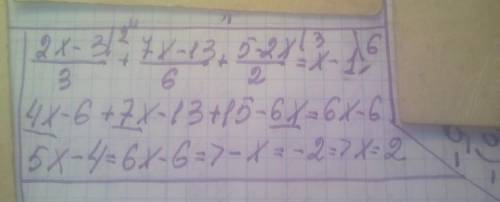 (2x-3)/3 |² + (7x-13)/6 + (5-2x)/2 |³ = x-1 |⁶
4x-6+7x-13+15-6x=6x-6
5x-4=6x-6=>-x=-2=>x=2